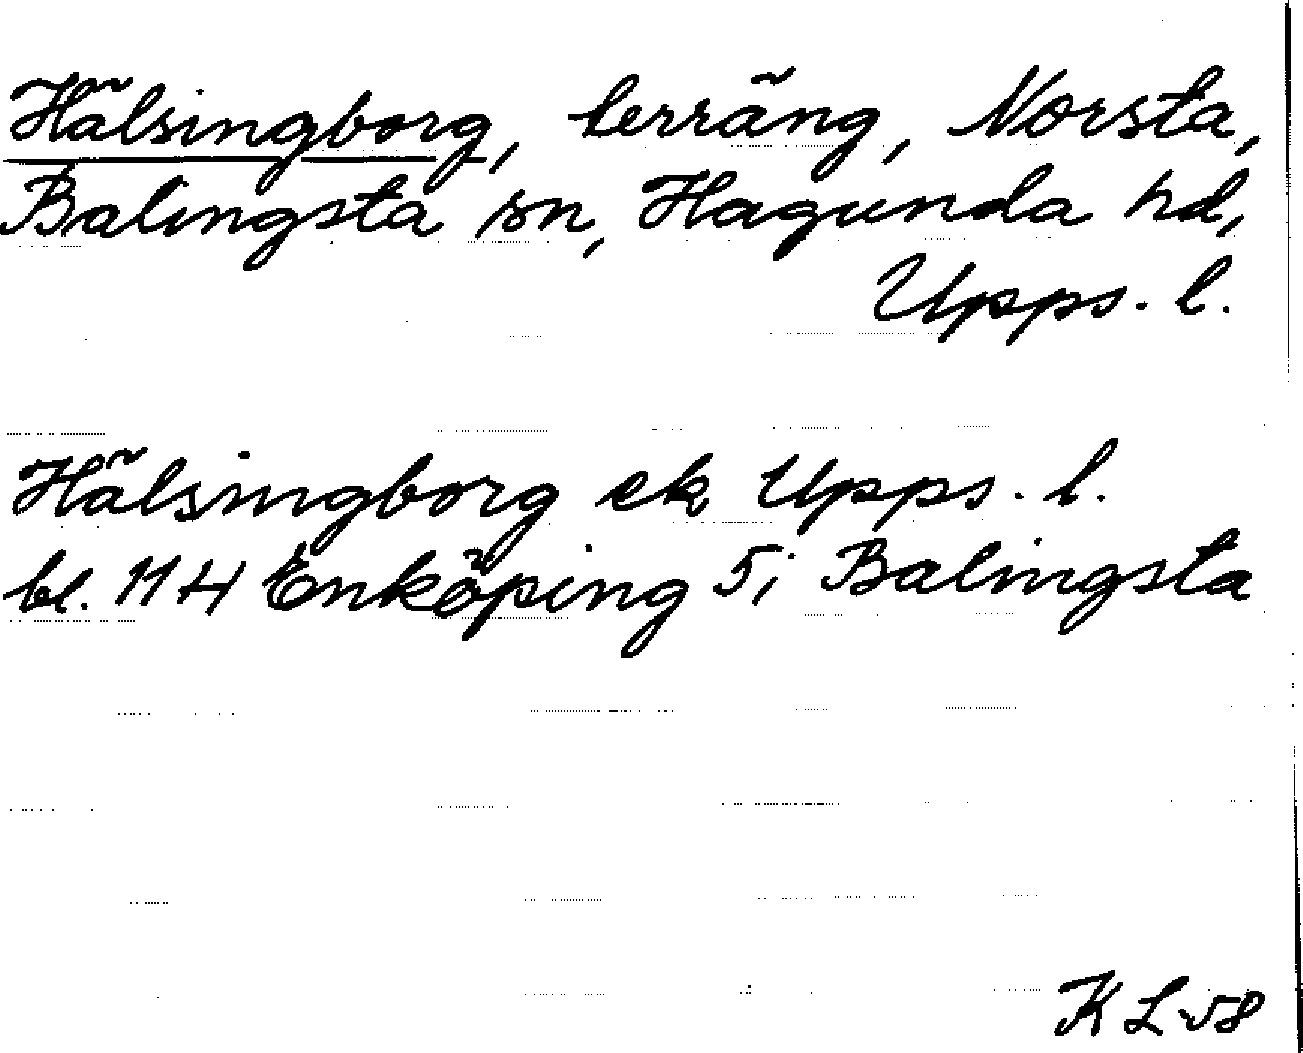 Hälsingborg, terräng, Norsta,
Balingsta sn, Hagunda hd,
Upps. l.
Hälsingborg ek Upps. l.
bl. 114 Enköping 5i Balingsta
KL-58